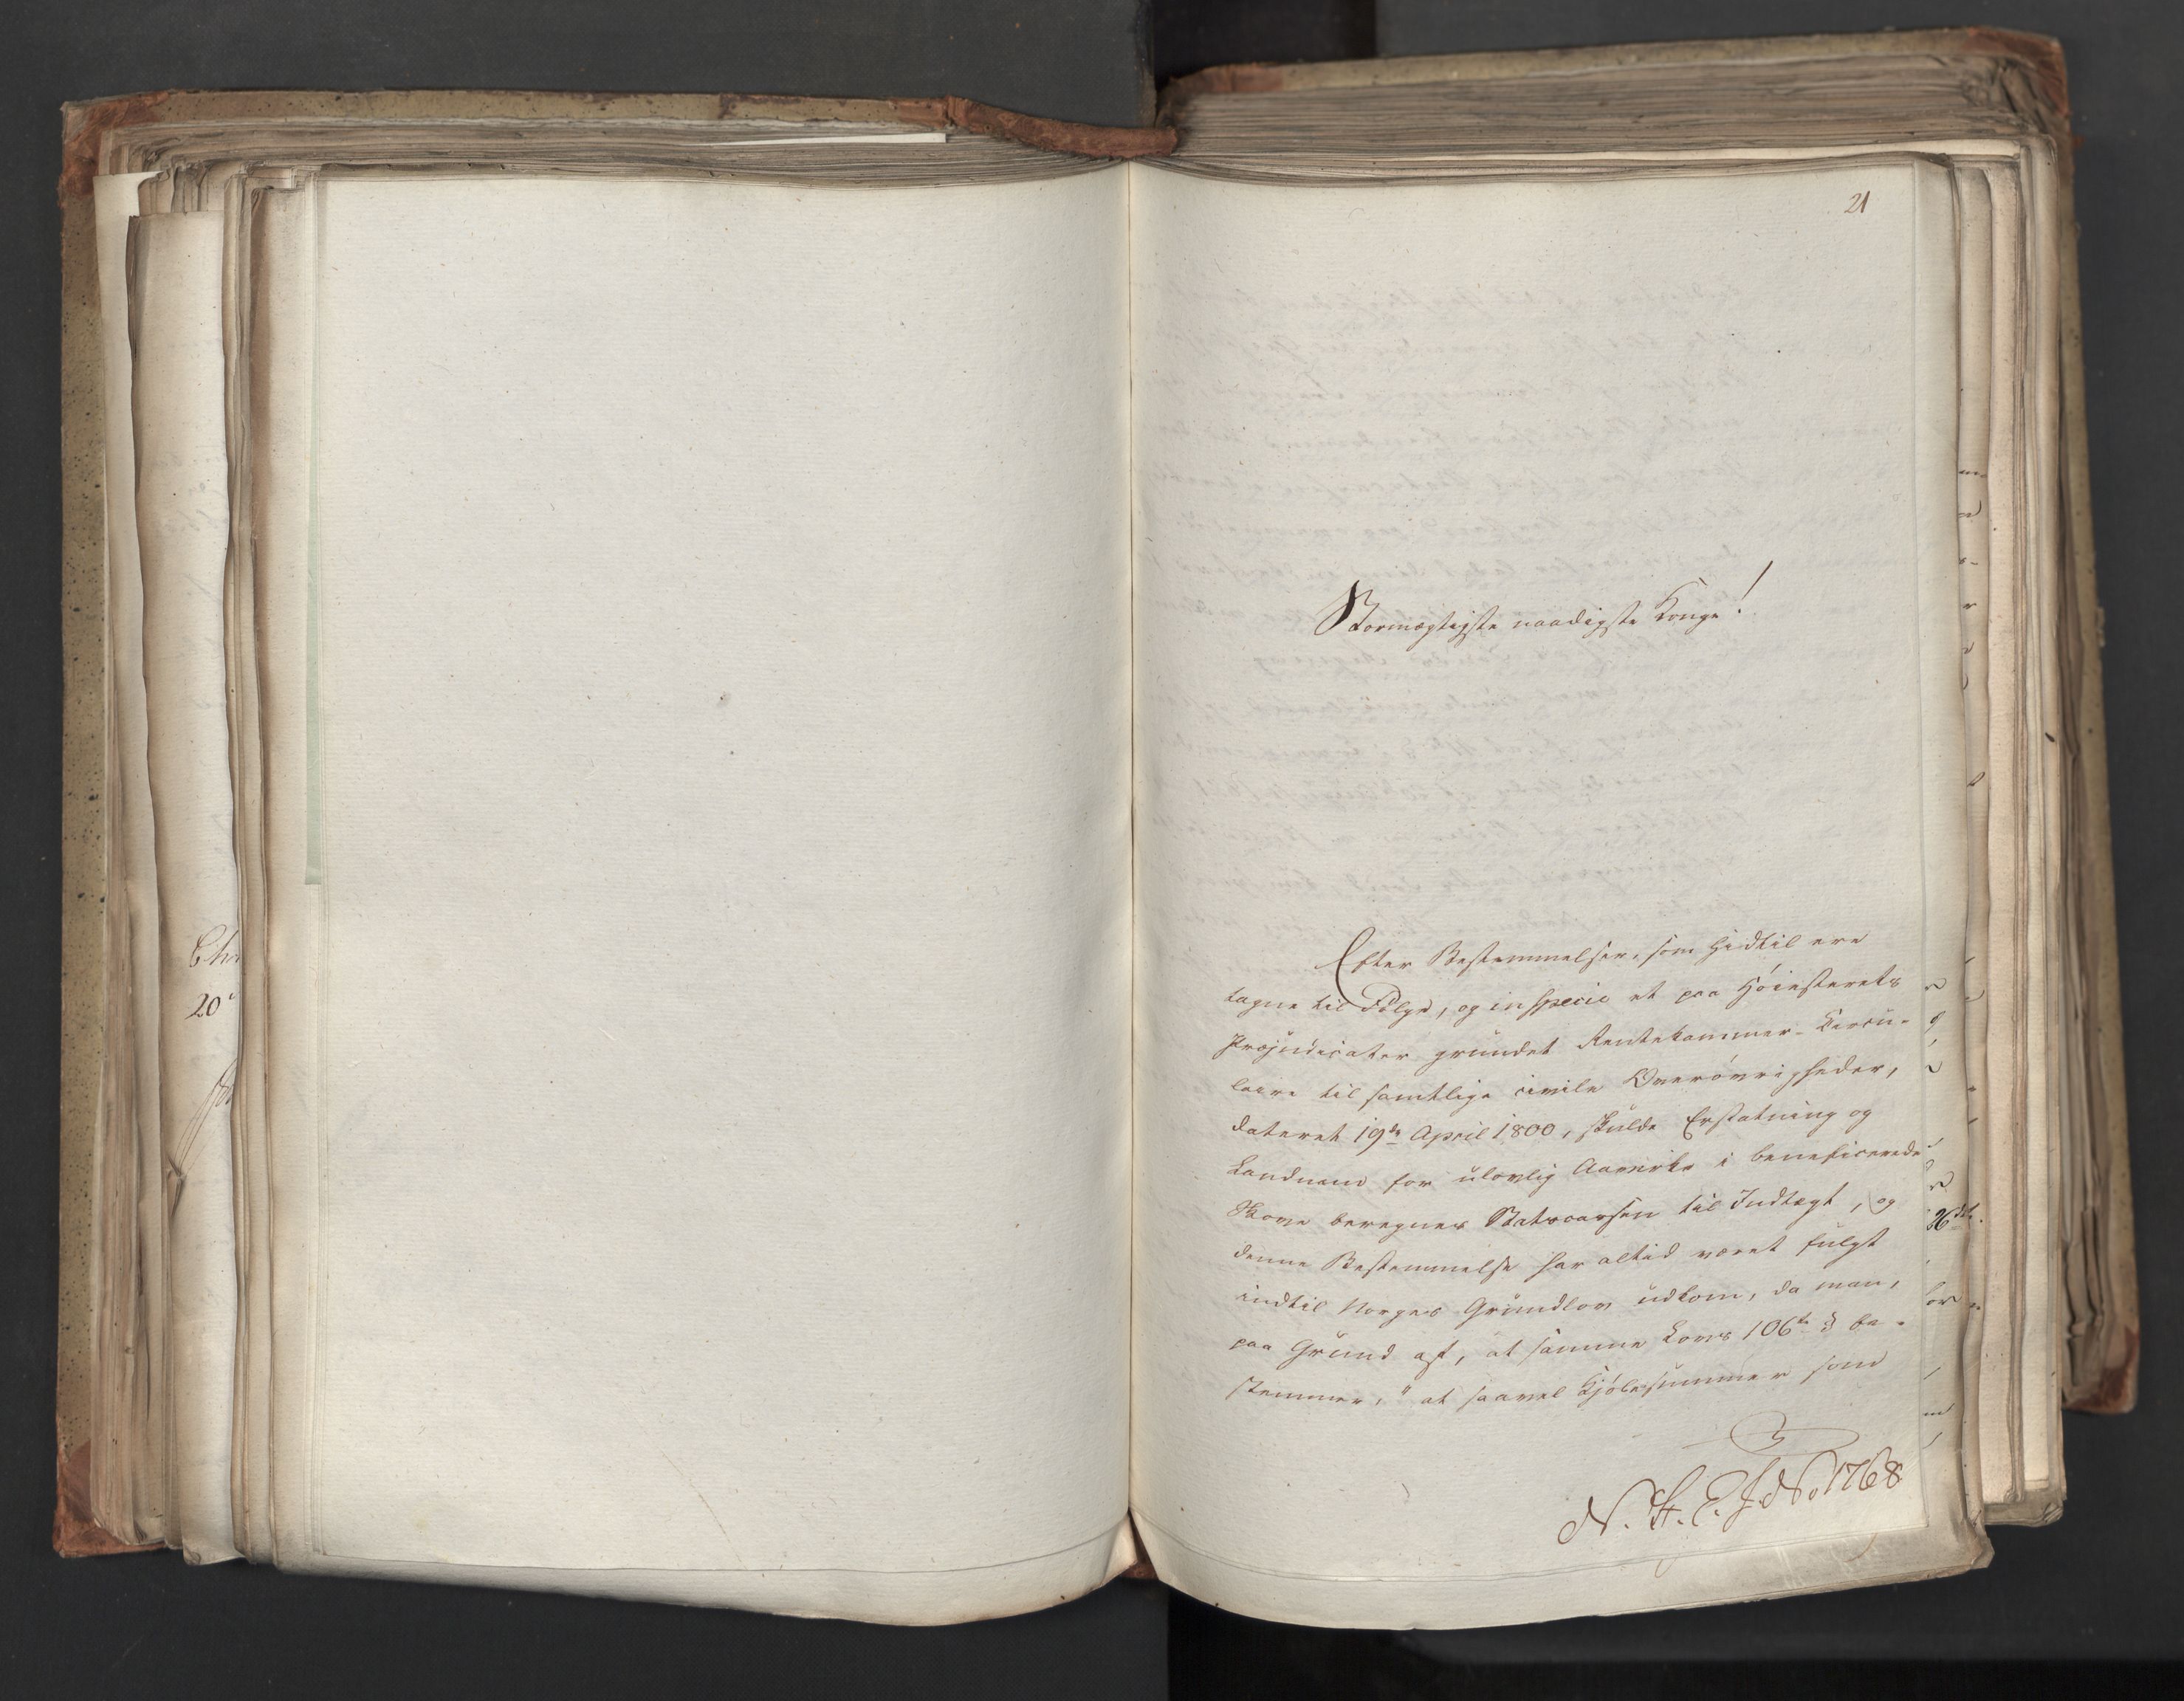 21
Stormægtigste naadigste Konge!
Efter Bestemmelser, som hidtil ere
tagne til Følge, og in specie et paa Høiesterets
Præjudicater grundet Rentekammer-Circu-
laire til samtlige civile Overøvrigheder,
dateret 19de April 1800, skulde Erstatning og
Landnam for ulovlig Aavirke i beneficerede
Skove beregnes Statscassen til Indtægt, og
denne Bestemmelse har altid været fulgt
indtil Norges Grundlov udkom, da man,
paa Grund af, at samme Lovs 106te § be-
stemmer, "at saavel Kjøbesummer som
N. 1768
Chr
20
26de